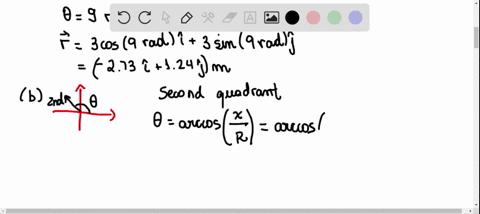 θ = 9 r
r⃗ = 3cos(9 rad) î + 3 sin(9 rad) ĵ
= (-2.73 î + 1.24 ĵ) m
(b) 2nd θ Second quadrant
θ = arccos(x/R) = arccos(